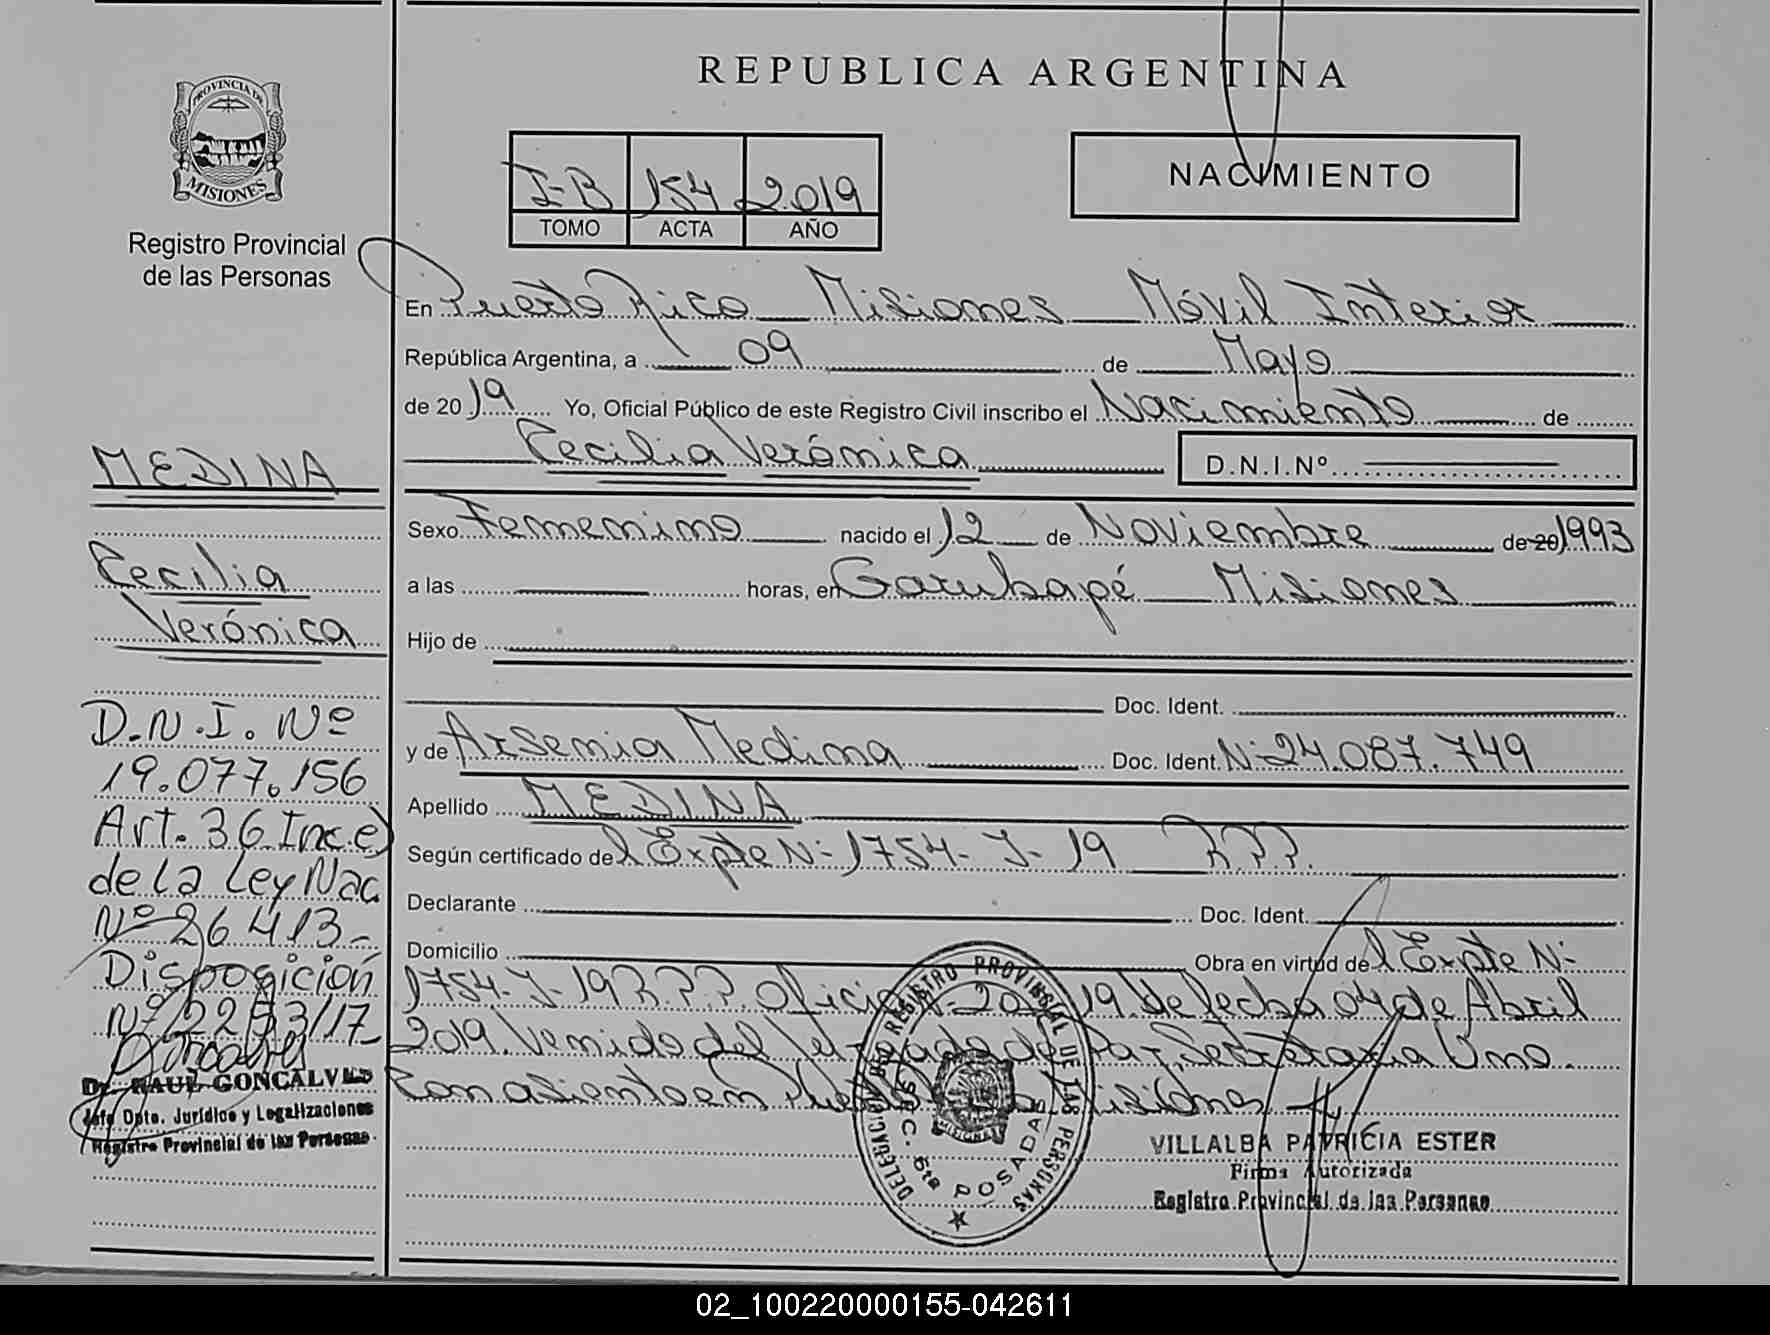 REPUBLICA ARGENTINA
PROVINCIA DE
MISIONES
Registro Provincial
de las Personas
I-B 154 2019
TOMO ACTA AÑO
NACIMIENTO
En Puerto Rico Misiones Móvil Interior
República Argentina, a 09 de Mayo
de 2019 Yo, Oficial Público de este Registro Civil inscribo el Nacimiento de
Cecilia Verónica D.N.I.Nº
Sexo Femenino nacido el 12 de Noviembre de 20 1993
a las horas, en Garuhapé Misiones
Hijo de
Doc. Ident.
y de Arsenia Medina Doc. Ident. Nº 24.087.749
Apellido MEDINA
Según certificado del Expte Nº 1754-J-19 R.P.P.
Declarante Doc. Ident.
Domicilio Obra en virtud del Expte Nº
1754-J-19 R.P.P. Oficio 19 de fecha 04 de Abril
2019. Venido del Juzgado de Paz, Secretaria Uno.
Con asiento en Misiones
MEDINA
Cecilia
Verónica
D.N.I. Nº
19.077.156
Art. 36 Inc. e)
de la Ley Nac
Nº 26413-
Disposición
Nº 2253/17
Dr. RAUL GONCALVES
Jefe Dpto. Jurídico y Legalizaciones
Registro Provincial de las Personas
DELEGACION REGISTRO PROVINCIAL DE LAS PERSONAS
SECC. 6ta POSADAS
MISIONES
VILLALBA PATRICIA ESTER
Firma Autorizada
Registro Provincial de las Personas
02_100220000155-042611